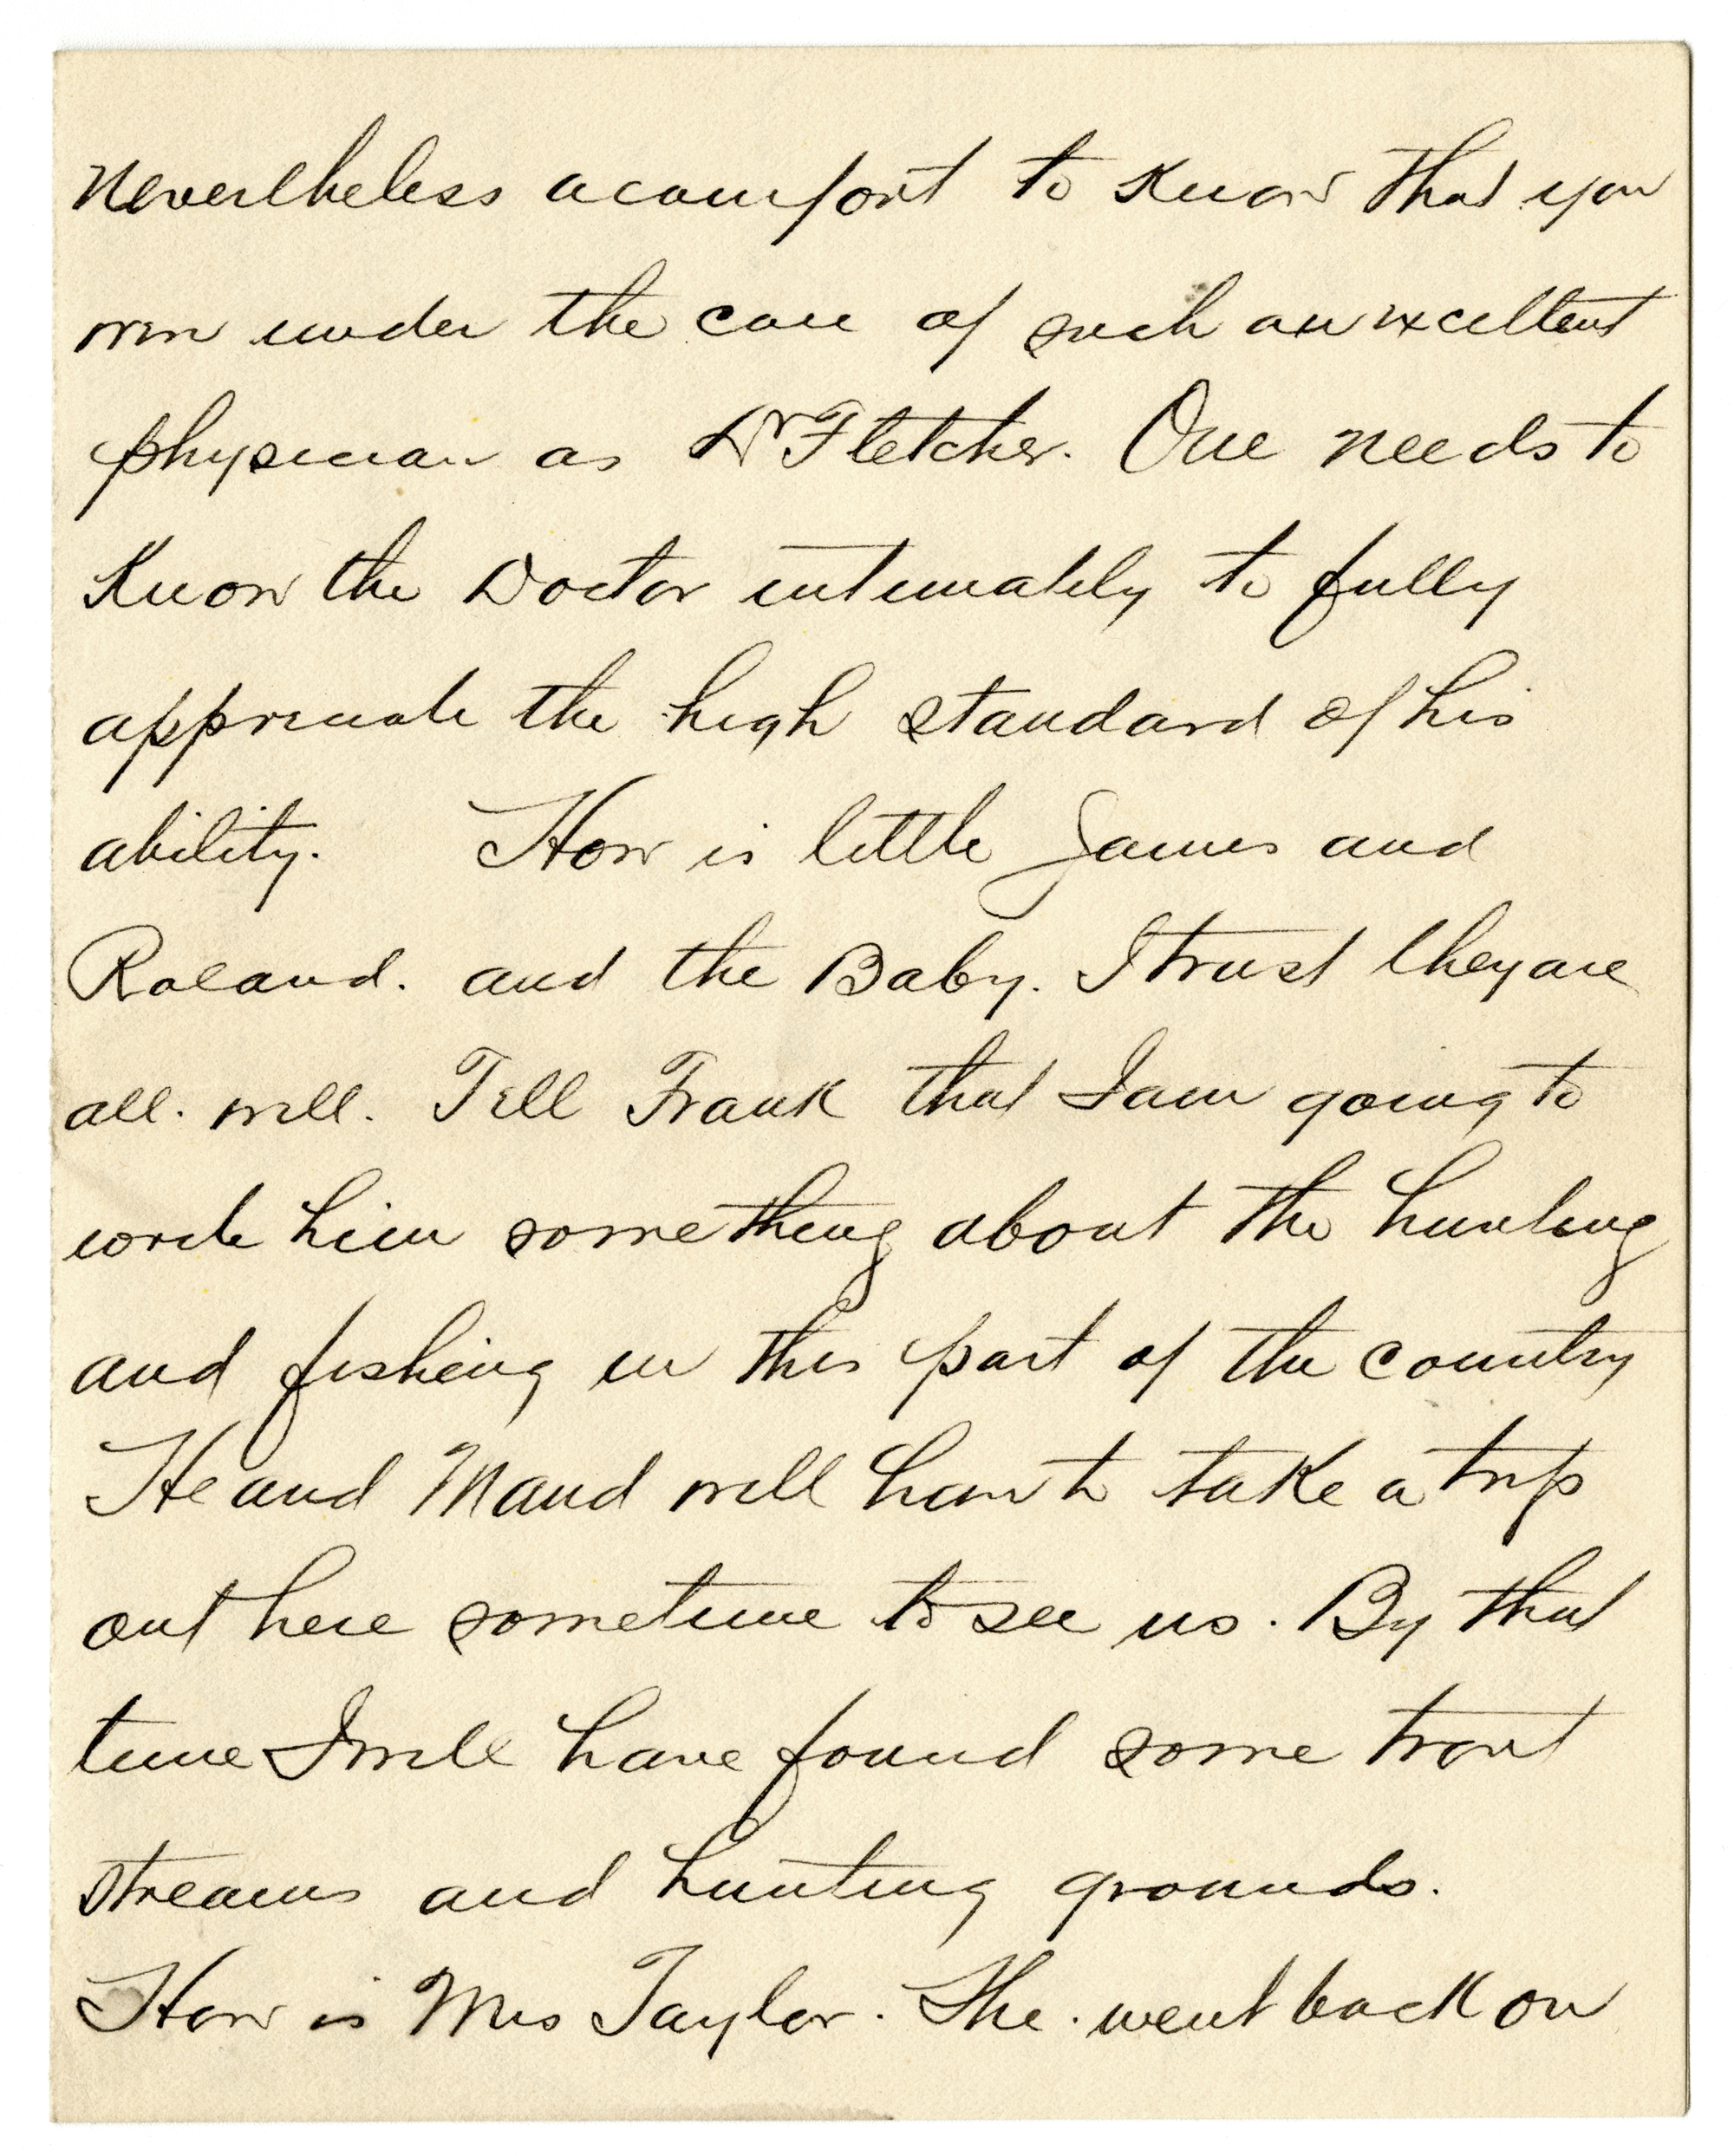 Nevertheless a comfort to know that you
were under the care of such an excellent
physician as Dr Fletcher. One needs to
know the Doctor intimately to fully
appreciate the high standard of his
ability. How is little James and
Roland. and the Baby. I trust they are
all. well. Tell Frank that I am going to
write him something about the hunting
and fishing in this part of the country
He and Maud will have to take a trip
out here sometime to see us. By that
time I will have found some trout
streams and hunting grounds.
How is Mrs Taylor. She. went back on